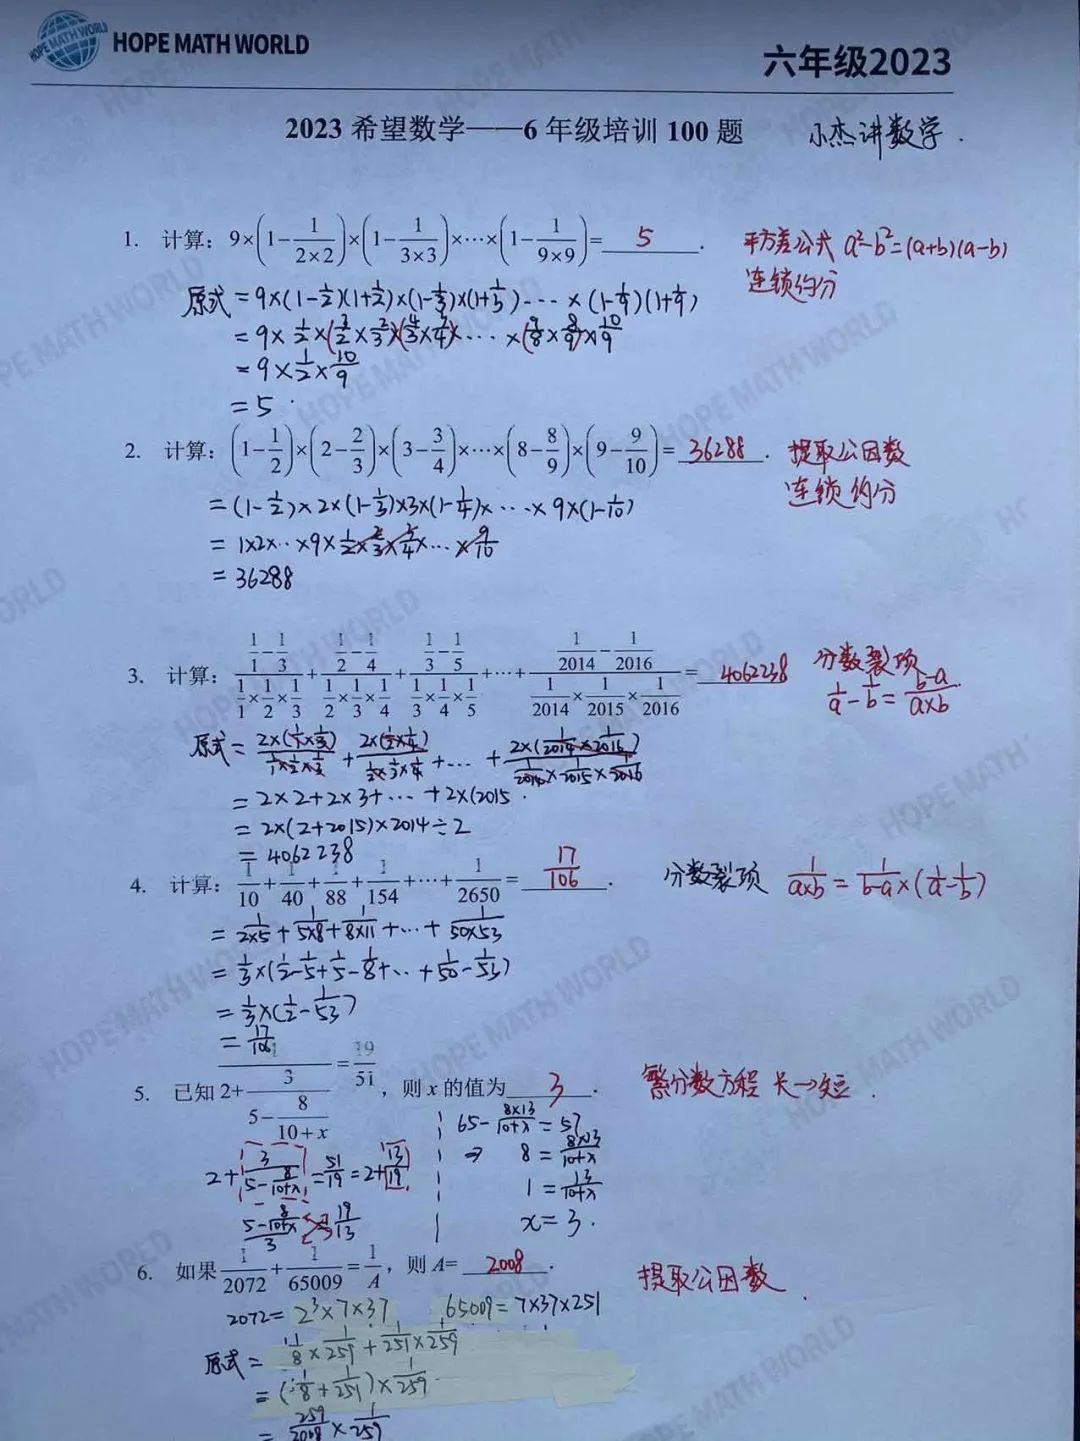 HOPE MATH WORLD
六年级2023
2023 希望数学——6 年级培训 100 题 小杰讲数学.
1. 计算：9×(1-1/(2×2))×(1-1/(3×3))×⋯×(1-1/(9×9))= 5 .
平方差公式 a²-b²=(a+b)(a-b)
连锁约分
原式=9×(1-1/2)(1+1/2)×(1-1/3)×(1+1/3)⋯×(1-1/9)(1+1/9)
=9×1/2×(3/2×2/3)×(4/3×3/4)×⋯×(9/8×8/9)×10/9
=9×1/2×10/9
=5.
2. 计算：(1-1/2)×(2-2/3)×(3-3/4)×⋯×(8-8/9)×(9-9/10)= 36288 .
提取公因数
连锁约分
=(1-1/2)×2×(1-1/3)×3×(1-1/4)×⋯×9×(1-1/10)
=1×2×⋯×9×1/2×2/3×
=36288
3. 计算：(1/1-1/3)/(1/1×1/2×1/3)+(1/2-1/4)/(1/2×1/3×1/4)+(1/3-1/5)/(1/3×1/4×1/5)+⋯+(1/2014-1/2016)/(1/2014×1/2015×1/2016)= 4062238
分数裂项
1/a-1/b=(b-a)/(a×b)
原式=2×(1/1×1/3)/(1/1×1/2×1/3)+2×(1/2×1/4)/(1/2×1/3×1/4)+⋯+2×(1/2014×1/2016)/(1/2014×1/2015×1/2016)
=2×2+2×3+⋯+2×(2015.
=2×(2+2015)×2014÷2
=4062238
4. 计算：1/10+1/40+1/88+1/154+⋯+1/2650= 17/106 .
分数裂项 1/(a×b)=1/(b-a)×(1/a-1/b)
=1/(2×5)+1/(5×8)+1/(8×11)+⋯+1/(50×53)
=1/3×(1/2-1/5+1/5-1/8+⋯+1/50-1/53)
=1/3×(1/2-1/53)
=17/106
5. 已知 1/(2+3/(5-8/(10+x)))=19/51，则 x 的值为 3 .
繁分数方程 长→短.
2+3/(5-8/(10+x))=51/19=2+13/19
(5-8/(10+x))/3=19/13
65-(8×13)/(10+x)=57
⇒ 8=(8×13)/(10+x)
1=13/(10+x)
x=3.
6. 如果 1/2072+1/65009=1/A，则 A= 2008 .
提取公因数.
2072=2³×7×37 65009=7×37×251
原式=1/8×1/259+1/251×1/259
=(1/8+1/251)×1/259
=259/2008×1/259